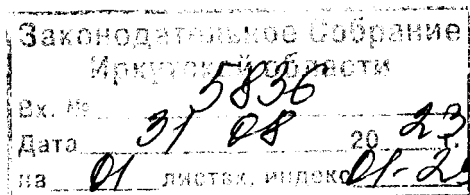 Законодательное Собрание
Иркутской области
Вх. № 5836
Дата 31 08 20 23
на 01 листах, индекс 01-2